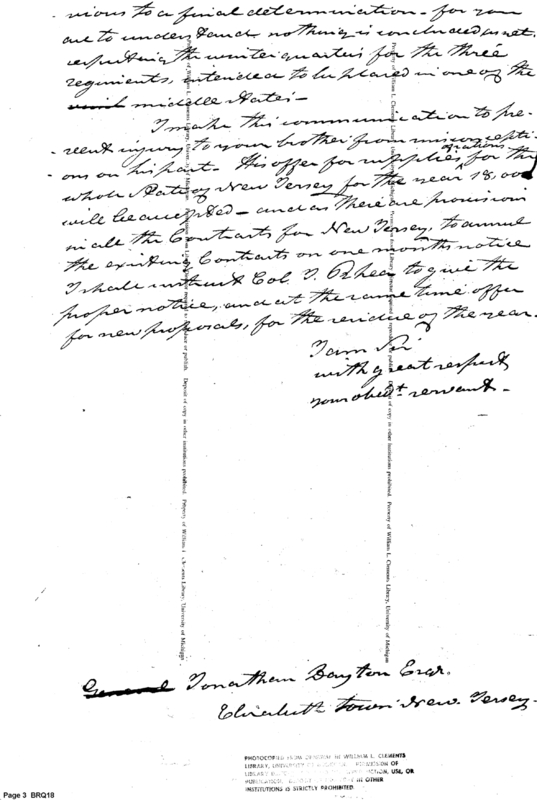 vious to a final determination - for you
are to understand nothing is concluded as yet
respecting the winter quarters for the three
regiments, intended to be placed in one of the
middle States -
I make this communication to pre-
vent injury to your brother from misconcepti-
ons on his part - His offer for supplies of rations, for the
whole State of New Jersey for the year 18,00
will be accepted - and as there are provision
in all the Contracts for New Jersey, to annul
the existing Contracts on one months notice
I shall instruct Col. J. Rhea to give the
proper notice, and at the same time offer
for new proposals, for the residue of the year.
I am Sir
with great respect
your obedt servant -
General Jonathan Dayton Esqr.
Elizabeth town New Jersey -
Property of William L. Clements Library, University of Michigan
Deposit of copy in other institutions prohibited. Property of William L. Clements Library, University of Michigan
PHOTOCOPIED FROM ORIGINAL IN WILLIAM L. CLEMENTS
LIBRARY, UNIVERSITY OF PERMISSION OF
LIBRARY USE, OR
IN OTHER
INSTITUTIONS IS STRICTLY PROHIBITED.
Page 3 BRQ18